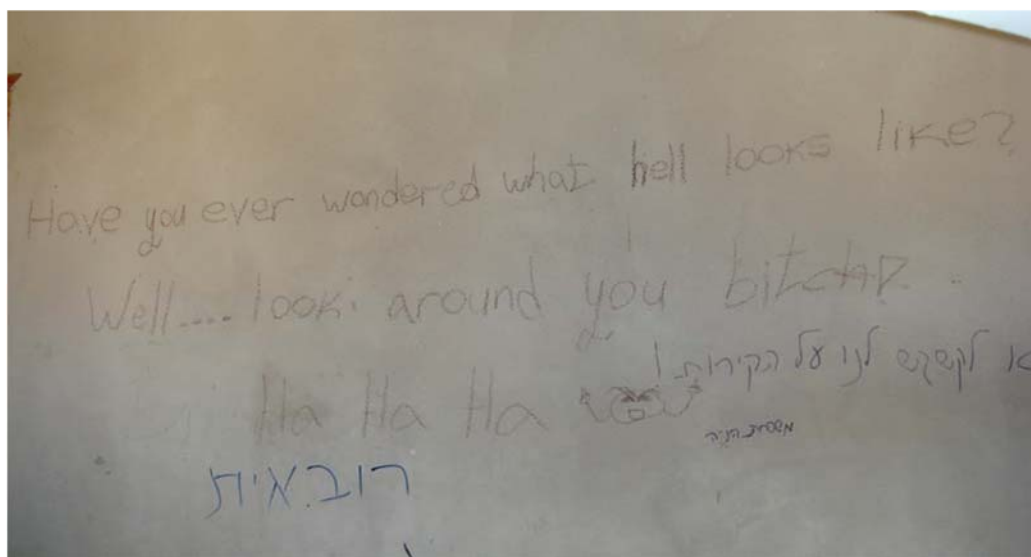 Have you ever wondered what hell looks like?
Well.... look around you bitch!
Ha Ha Ha
לקשקש לנו על הקירות!
רובאית